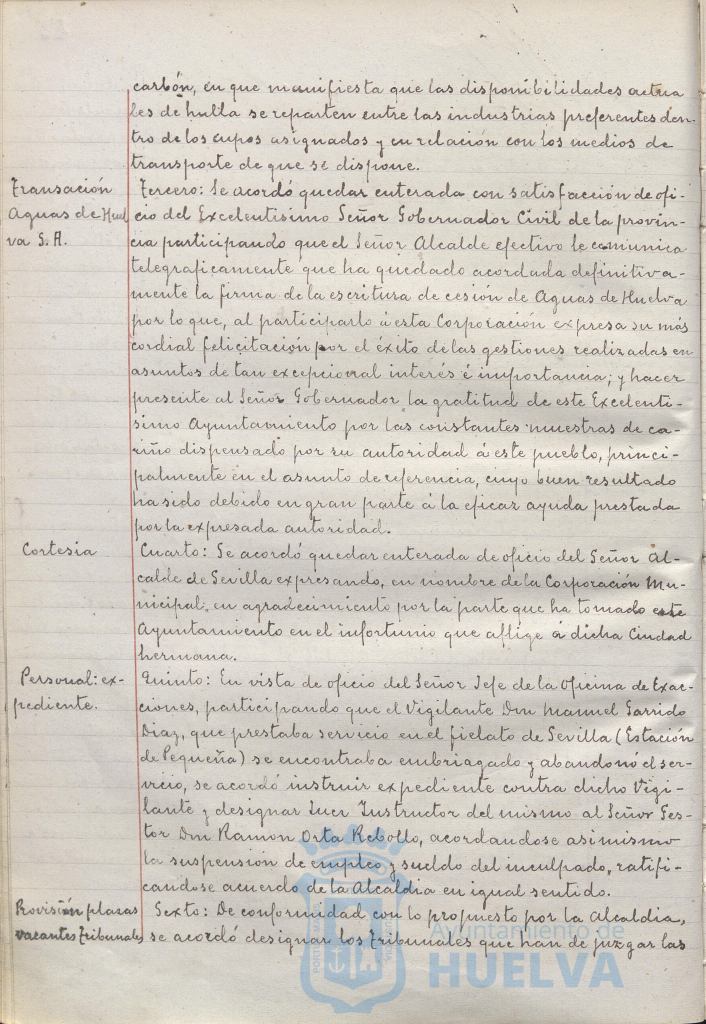 carbón, en que manifiesta que las disponibilidades actua
les de hulla se reparten entre las industrias preferentes den-
tro de los cupos asignados y en relación con los medios de
transporte de que se dispone.
Transación
Aguas de Huel
va S.A.
Tercero: Se acordó quedar enterada con satisfacción de ofi-
cio del Excelentisimo Señor Gobernador Civil de la provin-
cia participando que el Señor Alcalde efectivo le comunica
telegraficamente que ha quedado acordada definitiva-
mente la firma de la escritura de cesión de Aguas de Huelva
por lo que, al participarlo á esta Corporación expresa su más
cordial felicitación por el éxito de las gestiones realizadas en
asuntos de tan excepcional interés é importancia; y hacer
presente al Señor Gobernador la gratitud de este Excelenti-
simo Ayuntamiento por las constantes muestras de ca-
riño dispensado por su autoridad á este pueblo, princi-
palmente en el asunto de referencia, cuyo buen resultado
ha sido debido en gran parte á la eficaz ayuda prestada
por la expresada autoridad.
Cortesia
Cuarto: Se acordó quedar enterada de oficio del Señor Al-
calde de Sevilla expresando, en nombre de la Corporación Mu-
nicipal, en agradecimiento por la parte que ha tomado este
Ayuntamiento en el infortunio que aflige á dicha Ciudad
hermana.
Personal: ex-
pediente.
Quinto: En vista de oficio del Señor Jefe de la Oficina de Exac-
ciones, participando que el Vigilante Don Manuel Garrido
Diaz, que prestaba servicio en el fielato de Sevilla (Estación
de Pequeña) se encontraba embriagado y abandonó el ser-
vicio, se acordó instruir expediente contra dicho Vigi-
lante y designar Juez Instructor del mismo al Señor Ges-
tor Don Ramon Orta Rebollo, acordandose asimismo
la suspensión de empleo y sueldo del inculpado, ratifi-
candose acuerdo de la Alcaldia en igual sentido.
Provisión plazas
vacantes Tribunales
Sexto: De conformidad con lo propuesto por la Alcaldia,
se acordó designar los Tribunales que han de juzgar las
Ayuntamiento de
HUELVA